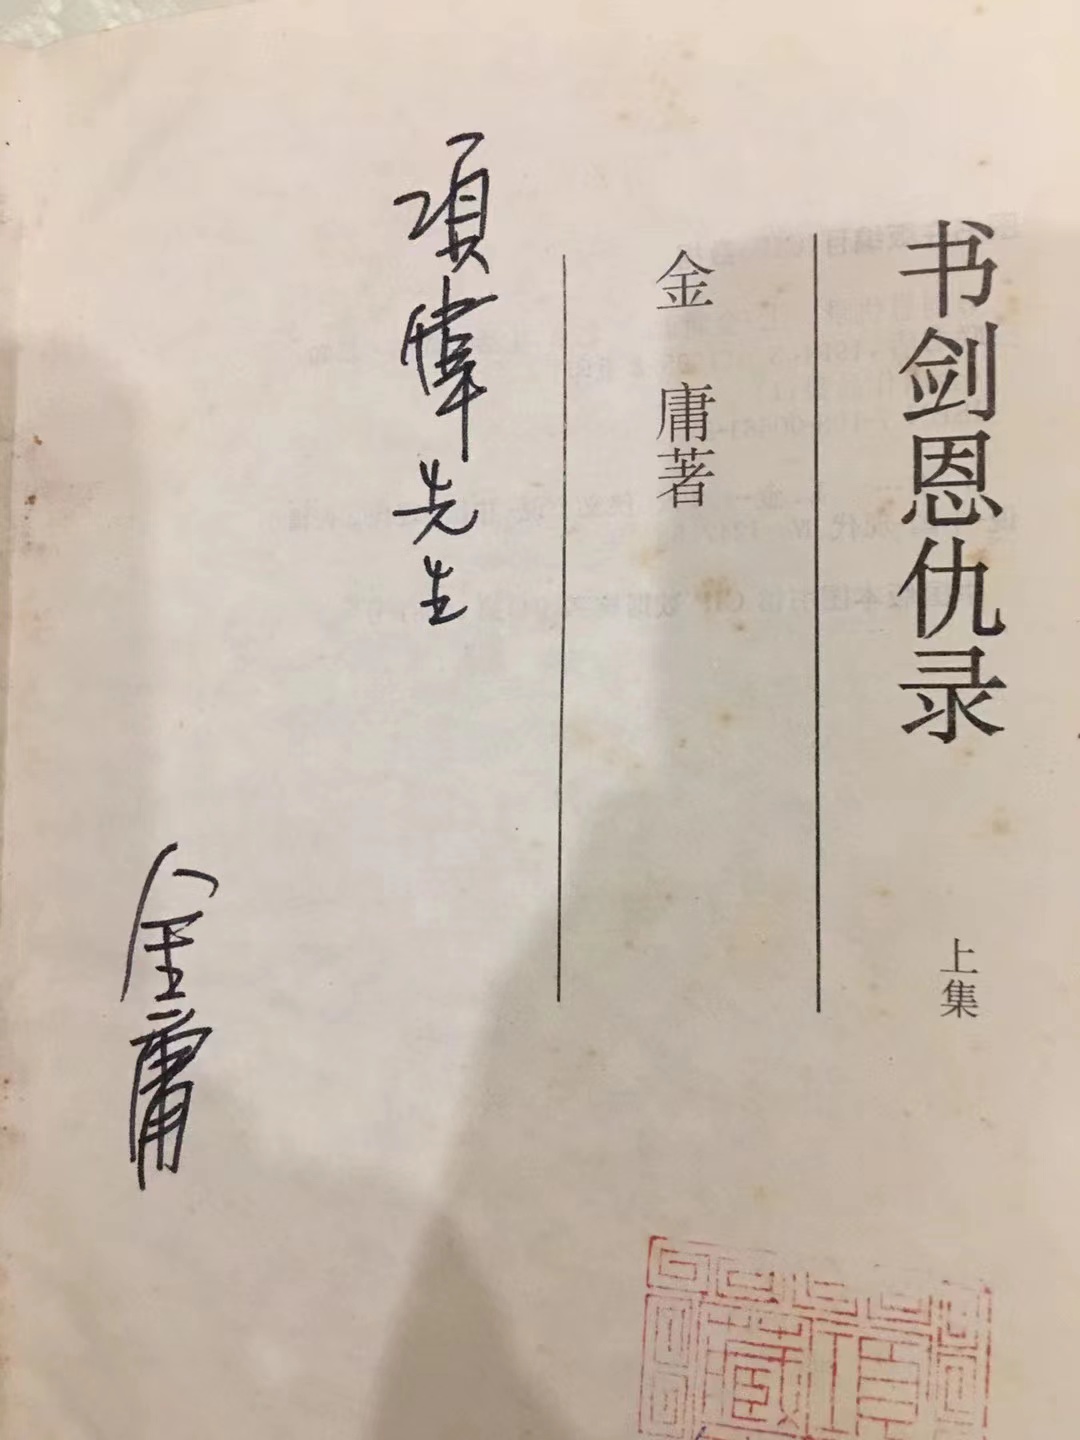 书剑恩仇录
上集
金庸著
項偉先生
金庸
藏項